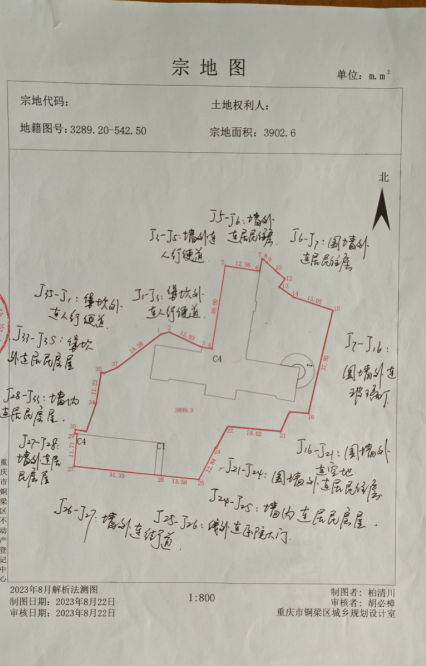 宗地图
单位：m.m²
宗地代码：
土地权利人：
地籍图号：3289.20-542.50
宗地面积：3902.6
北
J5-J6：墙外
连居民住房
J3-J5：墙外连
人行便道
J6-J7：围墙外
连居民住房
J35-J1：堡坎外
连人行便道
J1-J3：堡坎外
连人行便道
J33-J35：堡坎
外连居民房屋
J7-J16：
围墙外连
玻璃厂
J28-J33：墙内
连居民房屋
J27-J28：
墙外连居
民房屋
C4
C4
C1
3899.9
J16-J21：围墙外
连空地
J21-J24：围墙外连居民住房
J24-J25：墙内连居民房屋．
J26-J27：墙外连街道．
J25-J26：墙外连医院大门
重庆市铜梁区不动产登记中心
2023年8月解析法测图
制图日期：2023年8月22日
审核日期：2023年8月22日
1:800
制图者：柏清川
审核者：胡必樟
重庆市铜梁区城乡规划设计室